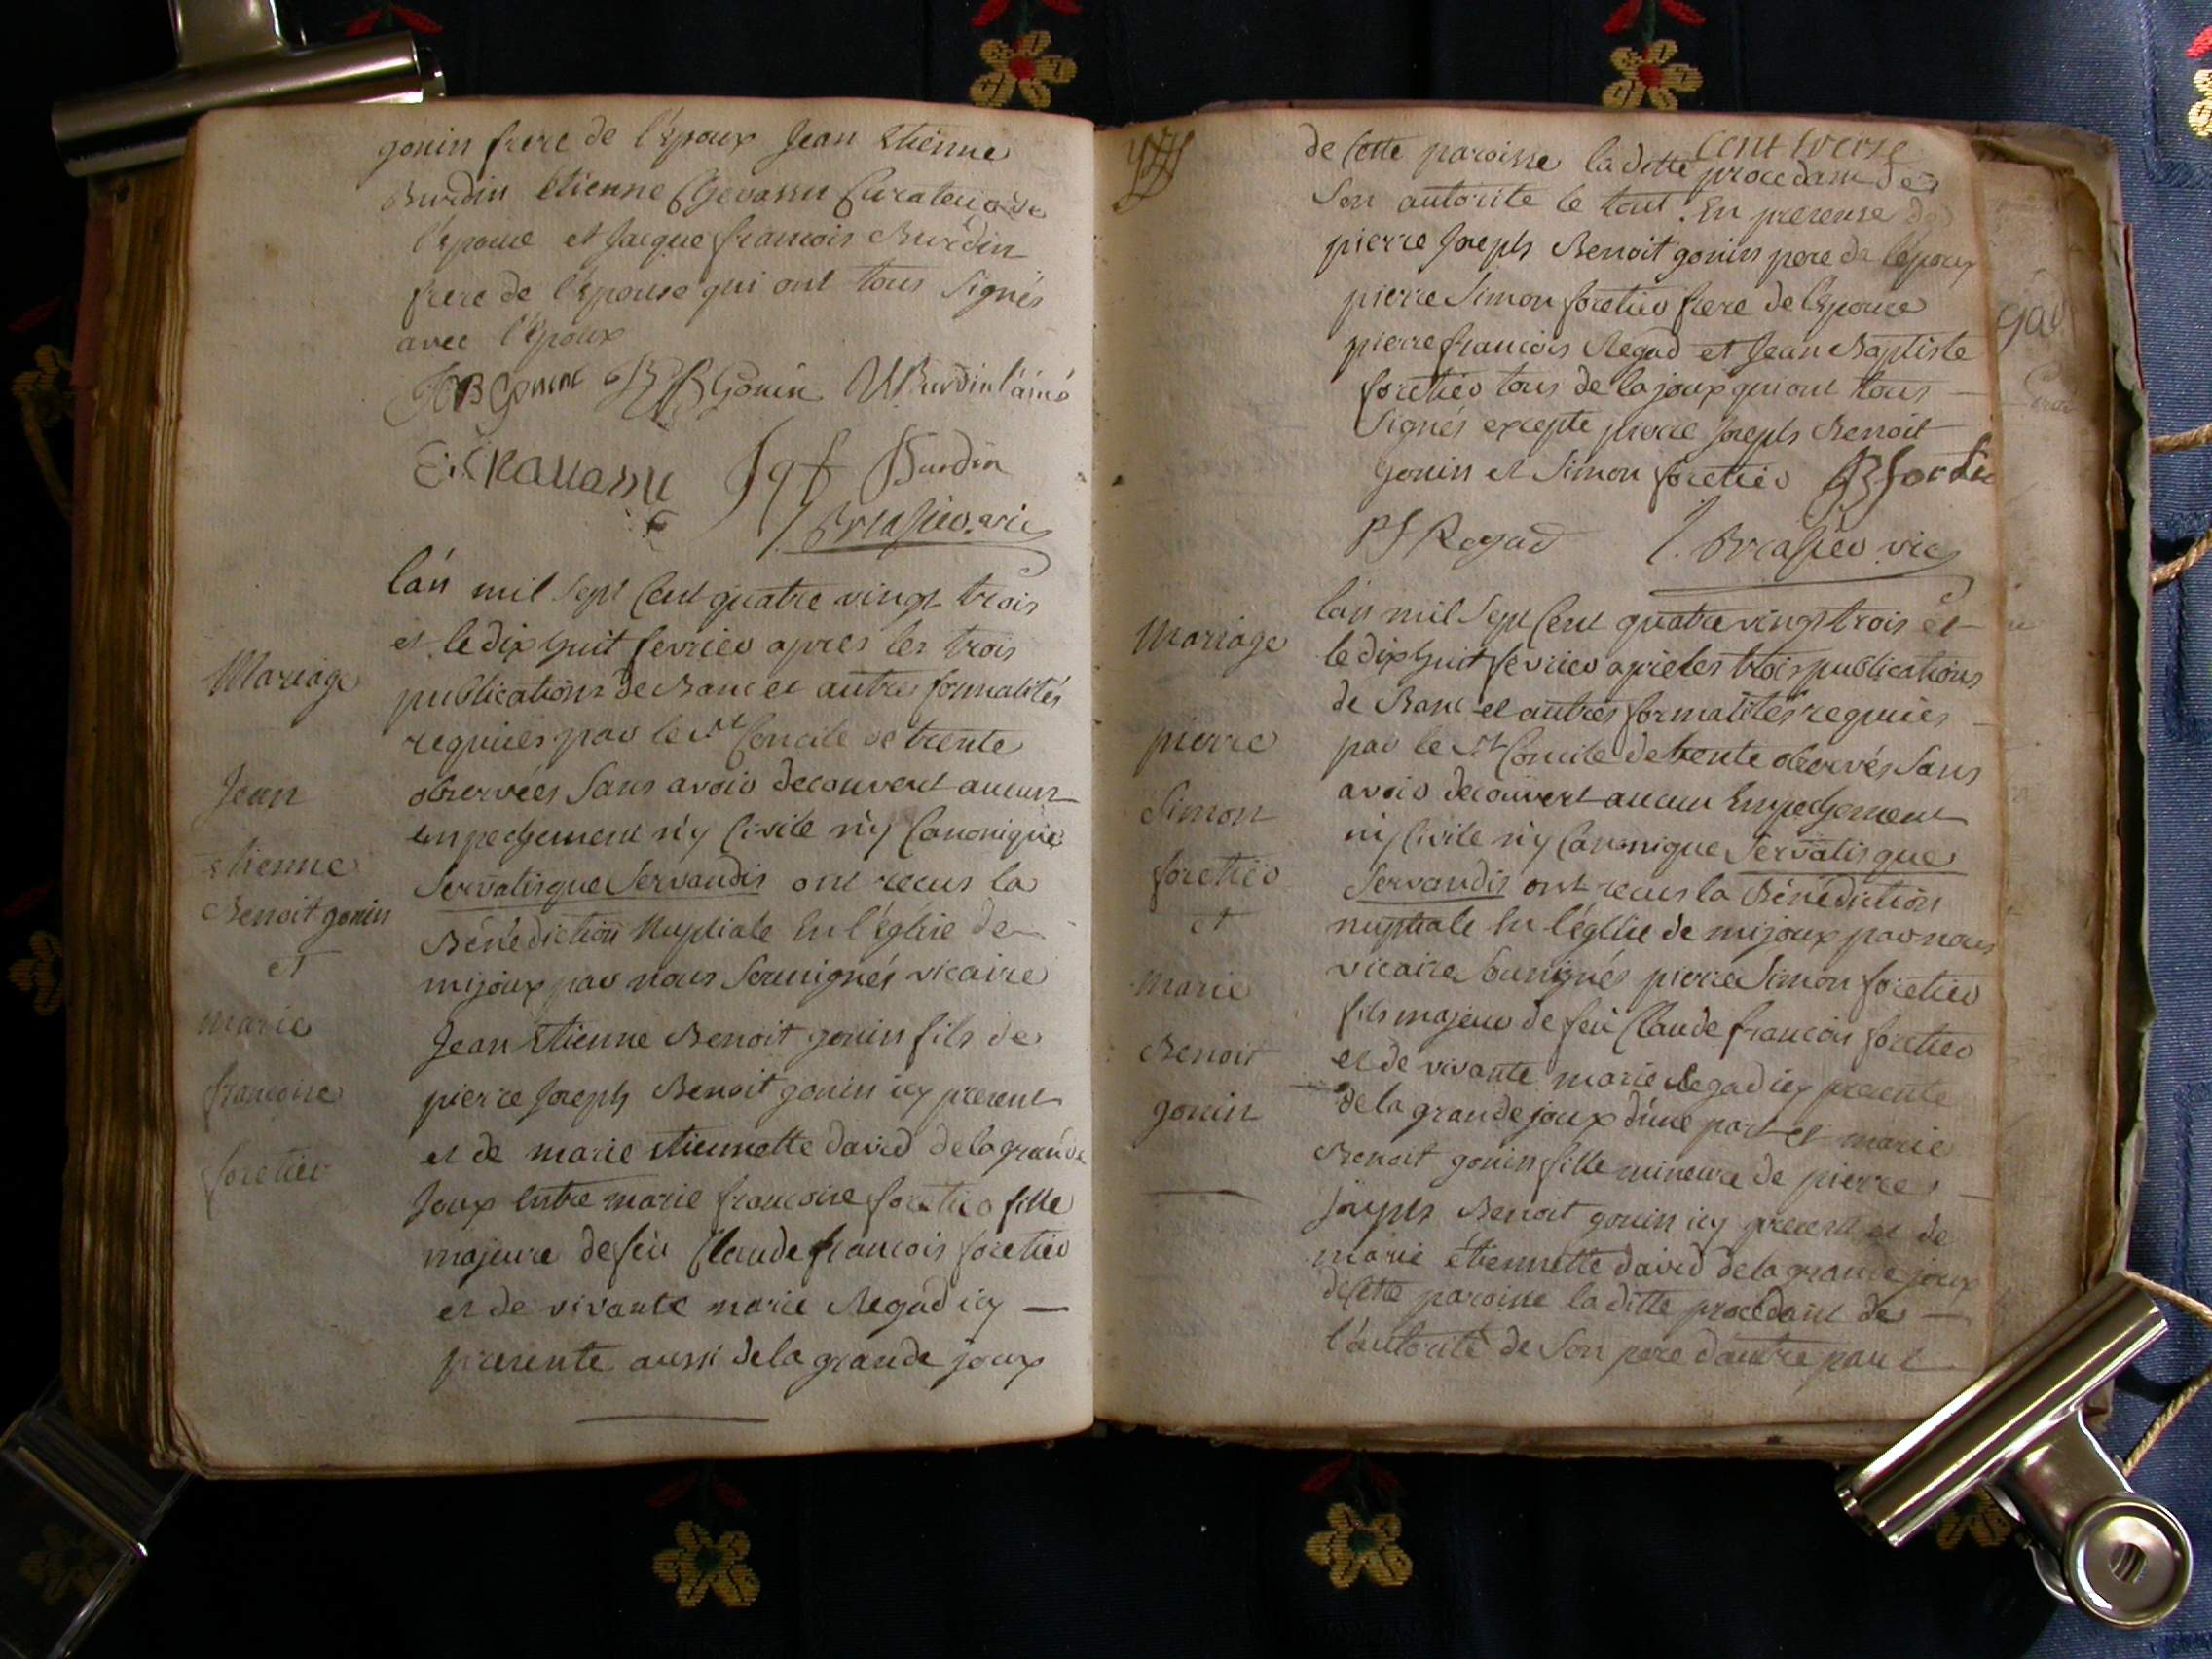 gonin frere de l'epoux Jean Etienne
Burdin Etienne Chevassu Curateur de
l'epouse et Jacque francois Burdin
frere de l'epouse qui ont tous Signés
avec l'epoux
JB Gonin Gonin Burdin l'ainé
Burdin
vic
lan mil sept Cent quatre vingt trois
et le dix huit fevrier apres les trois
publications de Banc et autres formalités
requises par le St Concile de trente
observées Sans avoir decouvert aucun
empechement n'y Civile n'y Canonique
Servatisque Servandis ont recus la
Bénédiction Nuptiale En l'église de
mijoux par nous Sousignés vicaire
Jean Etienne Benoit gonin fils de
pierre Joseph Benoit gonin icy present
et de marie Etiennette david de la grande
Joux Entre marie francoise foretier fille
majeure de feu Claude francois foretier
et de vivante marie Regad icy
presente aussi de la grande joux
Mariage
Jean
Etienne
Benoit gonin
et
marie
francoise
foretier
Cent treize
de Cette paroisse la ditte procedant de
Son autorite le tout En presence de
pierre Joseph Benoit gonin pere de l'epoux
pierre Simon foretier frere de l'Epouse
pierre francois Regad et Jean Baptiste
foretier tous de la joux qui ont tous
Signés excepte pierre Joseph Benoit
gonin et Simon foretier
PF Regad vic
lan mil Sept Cent quatre vingt trois et
le dix huit fevrier apres les trois publications
de Banc et autres formalités requises
par le St Concile de trente observés Sans
avoir decouvert aucun Empechement
n'y Civile n'y Canonique Servatisque
Servandis ont recus la Bénédiction
nuptiale En l'église de mijoux par nous
vicaire Sousignés pierre Simon foretier
fils majeur de feu Claude francois foretier
et de vivante marie Regad icy presente
de la grande joux d'une part et marie
Benoit gonin fille mineure de pierre
joseph Benoit gonin icy present et de
marie étiennette david de la grande joux
de Cette paroisse la ditte procedant de
l'autorité de Son pere d'autre part
Mariage
pierre
Simon
foretier
et
Marie
Benoit
gonin